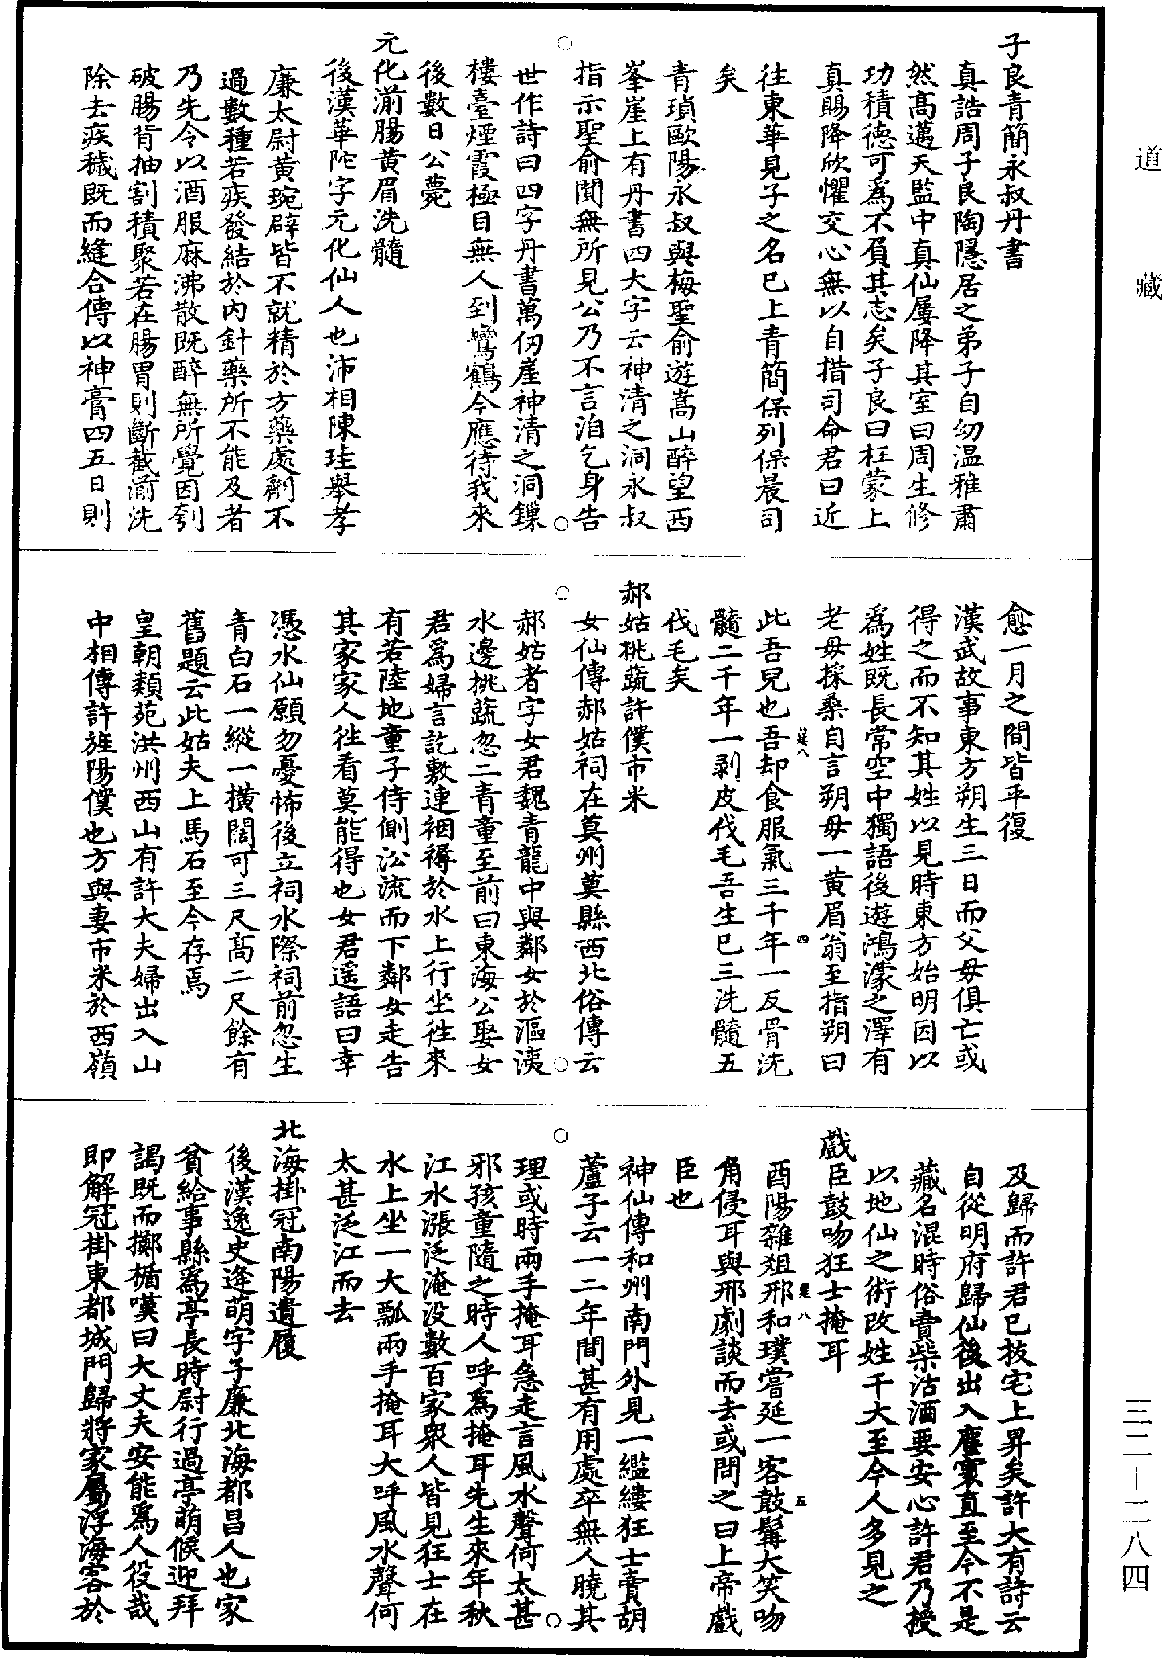 道藏
子良青簡永叔丹書
真誥周子良陶隱居之弟子自幼温雅肅
然高邁天監中真仙屢降其室曰周生修
功積德可為不負其志矣子良曰枉蒙上
真賜降欣懼交心無以自措司命君曰近
往東華見子之名已上青簡保列保晨司
矣
青瑣歐陽永叔與梅聖俞遊嵩山醉望西
峯崖上有丹書四大字云神清之洞永叔
指示聖俞聞無所見公乃不言洎乞身告
世作詩曰四字丹書萬仞崖神清之洞鏁
樓臺煙霞極目無人到鸞鶴今應待我來
後數日公薨
元化湔腸黄眉洗髓
後漢華陀字元化仙人也沛相陳珪舉孝
廉太尉黄琬辟皆不就精於方藥處劑不
過數種若疾發結於內針藥所不能及者
乃先令以酒服麻沸散既醉無所覺因刳
破腸背抽割積聚若在腸胃則斷截湔洗
除去疾穢既而縫合傅以神膏四五日則
愈一月之間皆平復
漢武故事東方朔生三日而父母俱亡或
得之而不知其姓以見時東方始明因以
為姓既長常空中獨語後遊鴻濛之澤有
老母採桑自言朔母一黄眉翁至指朔曰
此吾兒也吾却食服氣三千年一反骨洗
髓二千年一剥皮伐毛吾生已三洗髓五
伐毛矣
郝姑挑蔬許僕市米
女仙傳郝姑祠在莫州莫縣西北俗傳云
郝姑者字女君魏青龍中與鄰女於漚洟
水邊挑蔬忽二青童至前曰東海公娶女
君為婦言訖敷連裀褥於水上行坐徃來
有若陸地童子侍側沿流而下鄰女走告
其家家人徃看莫能得也女君遥語曰幸
憑水仙願勿憂怖後立祠水際祠前忽生
青白石一縱一横闊可三尺高二尺餘有
舊題云此姑夫上馬石至今存焉
皇朝類苑洪州西山有許大夫婦出入山
中相傳許旌陽僕也方與妻市米於西嶺
及歸而許君已抜宅上昇矣許大有詩云
自從明府歸仙後出入塵寰直至今不是
藏名混時俗賣柴沽酒要安心許君乃授
以地仙之術改姓干大至今人多見之
戲臣鼓吻狂士掩耳
酉陽雜俎邢和璞嘗延一客鼓髯大笑吻
角侵耳與邢劇談而去或問之曰上帝戲
臣也
神仙傳和州南門外見一繿縷狂士賣胡
蘆子云一二年間甚有用處卒無人曉其
理或時兩手掩耳急走言風水聲何太甚
邪孩童隨之時人呼為掩耳先生來年秋
江水漲泛淹没數百家衆人皆見狂士在
水上坐一大瓢兩手掩耳大呼風水聲何
太甚泛江而去
北海掛冠南陽遺履
後漢逸史逄萌字子廉北海都昌人也家
貧給事縣為亭長時尉行過亭萌候迎拜
謁既而擲楯嘆曰大丈夫安能為人役哉
即解冠掛東都城門歸將家屬浮海客於
三二—二八四